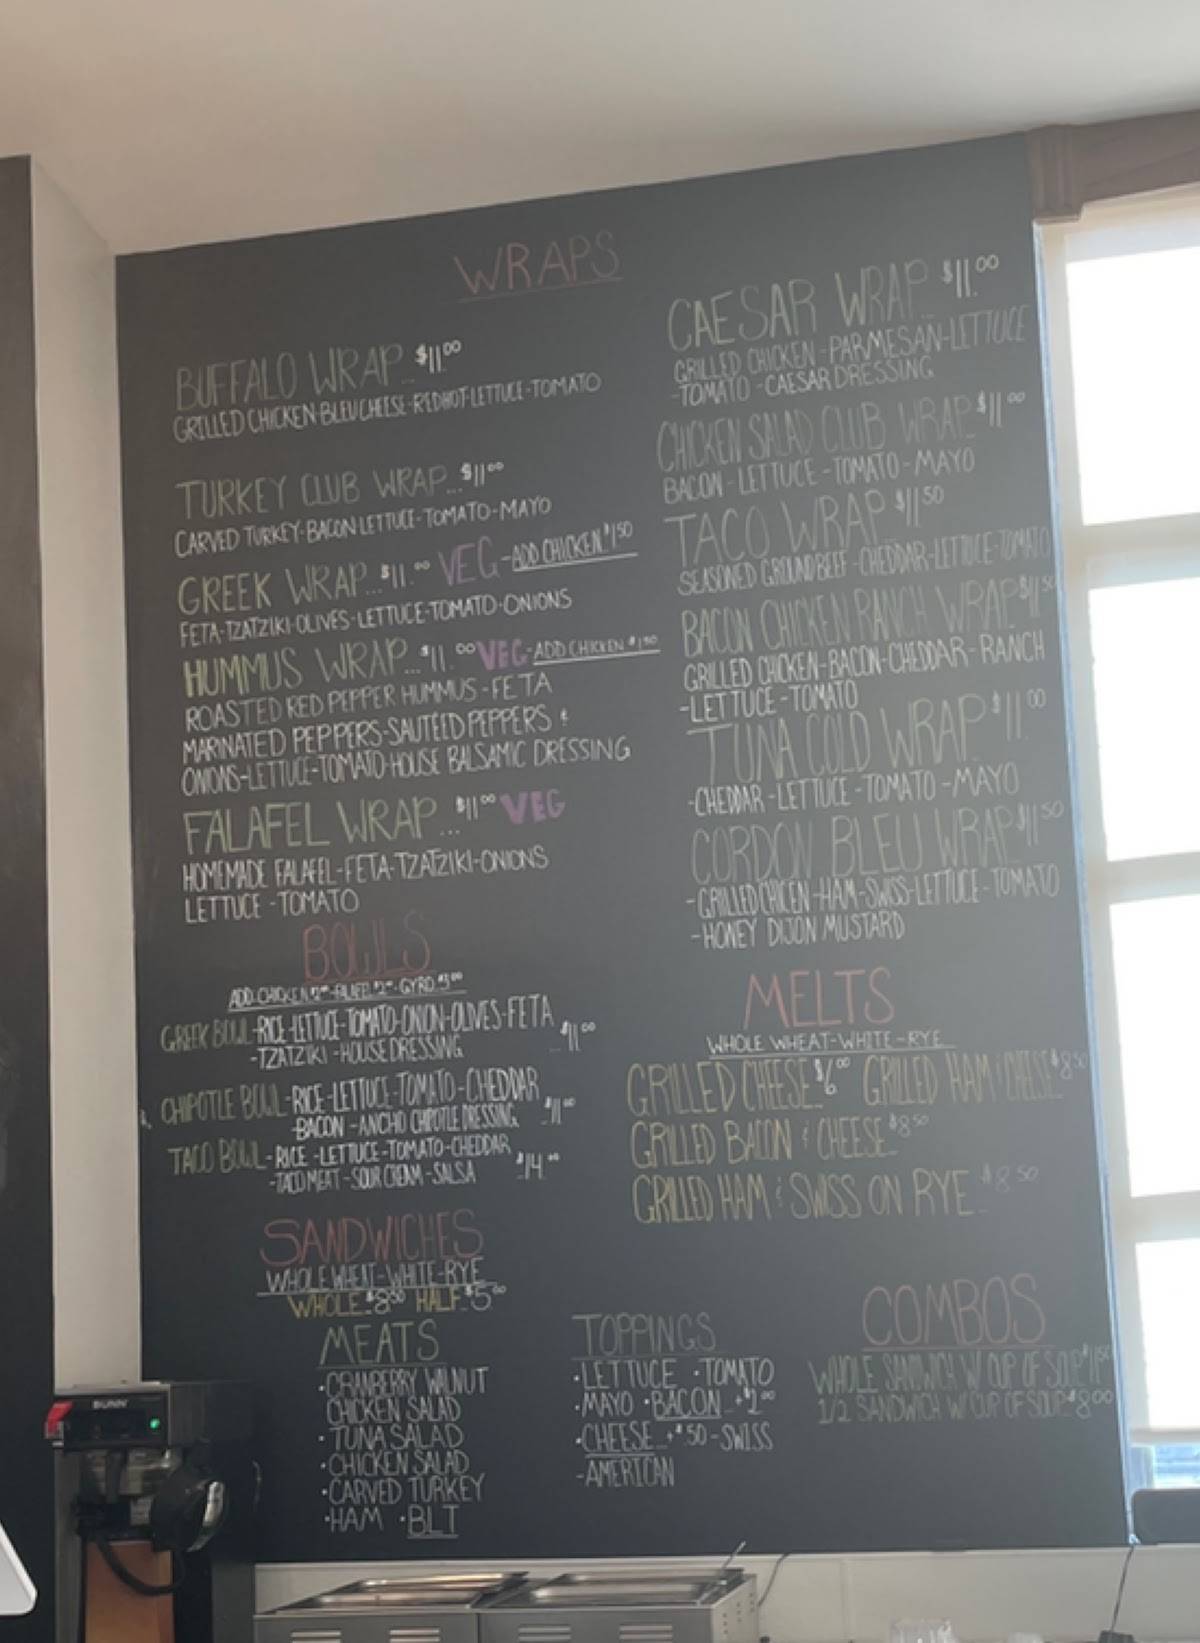 WRAPS
BUFFALO WRAP... $11.00
GRILLED CHICKEN-BLEU CHEESE-REDHOT-LETTUCE-TOMATO
TURKEY CLUB WRAP... $11.00
CARVED TURKEY-BACON-LETTUCE-TOMATO-MAYO
GREEK WRAP... $11.00 VEG-ADD CHICKEN $1.50
FETA-TZATZIKI-OLIVES-LETTUCE-TOMATO-ONIONS
HUMMUS WRAP... $11.00 VEG-ADD CHICKEN $1.50
ROASTED RED PEPPER HUMMUS-FETA
MARINATED PEPPERS-SAUTEED PEPPERS &
ONIONS-LETTUCE-TOMATO-HOUSE BALSAMIC DRESSING
FALAFEL WRAP... $11.00 VEG
HOMEMADE FALAFEL-FETA-TZATZIKI-ONIONS
LETTUCE-TOMATO
CAESAR WRAP... $11.00
GRILLED CHICKEN-PARMESAN-LETTUCE
-TOMATO-CAESAR DRESSING
CHICKEN SALAD CLUB WRAP... $11.00
BACON-LETTUCE-TOMATO-MAYO
TACO WRAP $11.50
SEASONED GROUND BEEF-CHEDDAR-LETTUCE-TOMATO
BACON CHICKEN RANCH WRAP $11.50
GRILLED CHICKEN-BACON-CHEDDAR-RANCH
-LETTUCE-TOMATO
TUNA COLD WRAP $11.00
-CHEDDAR-LETTUCE-TOMATO-MAYO
CORDON BLEU WRAP $11.50
-GRILLED CHICEN-HAM-SWISS-LETTUCE-TOMATO
-HONEY DIJON MUSTARD
BOWLS
ADD-CHICKEN-FALAFEL-GYRO
GREEK BOWL-RICE-LETTUCE-TOMATO-ONION-OLIVES-FETA
-TZATZIKI-HOUSE DRESSING ... $11.00
CHIPOTLE BOWL-RICE-LETTUCE-TOMATO-CHEDDAR
-BACON-ANCHO CHIPOTLE DRESSING $11.00
TACO BOWL-RICE-LETTUCE-TOMATO-CHEDDAR
-TACO MEAT-SOUR CREAM-SALSA $14.00
MELTS
WHOLE WHEAT-WHITE-RYE
GRILLED CHEESE $6.00 GRILLED HAM & CHEESE $8.50
GRILLED BACON & CHEESE $8.50
GRILLED HAM & SWISS ON RYE $8.50
SANDWICHES
WHOLE WHEAT-WHITE-RYE
WHOLE $8.50 HALF $5.00
MEATS
·CRANBERRY WALNUT
CHICKEN SALAD
·TUNA SALAD
·CHICKEN SALAD
·CARVED TURKEY
·HAM ·BLT
TOPPINGS
·LETTUCE ·TOMATO
·MAYO ·BACON +$1.00
·CHEESE +$.50-SWISS
-AMERICAN
COMBOS
WHOLE SANDWICH W/ CUP OF SOUP $11.50
1/2 SANDWICH W/ CUP OF SOUP $8.00
BUNN